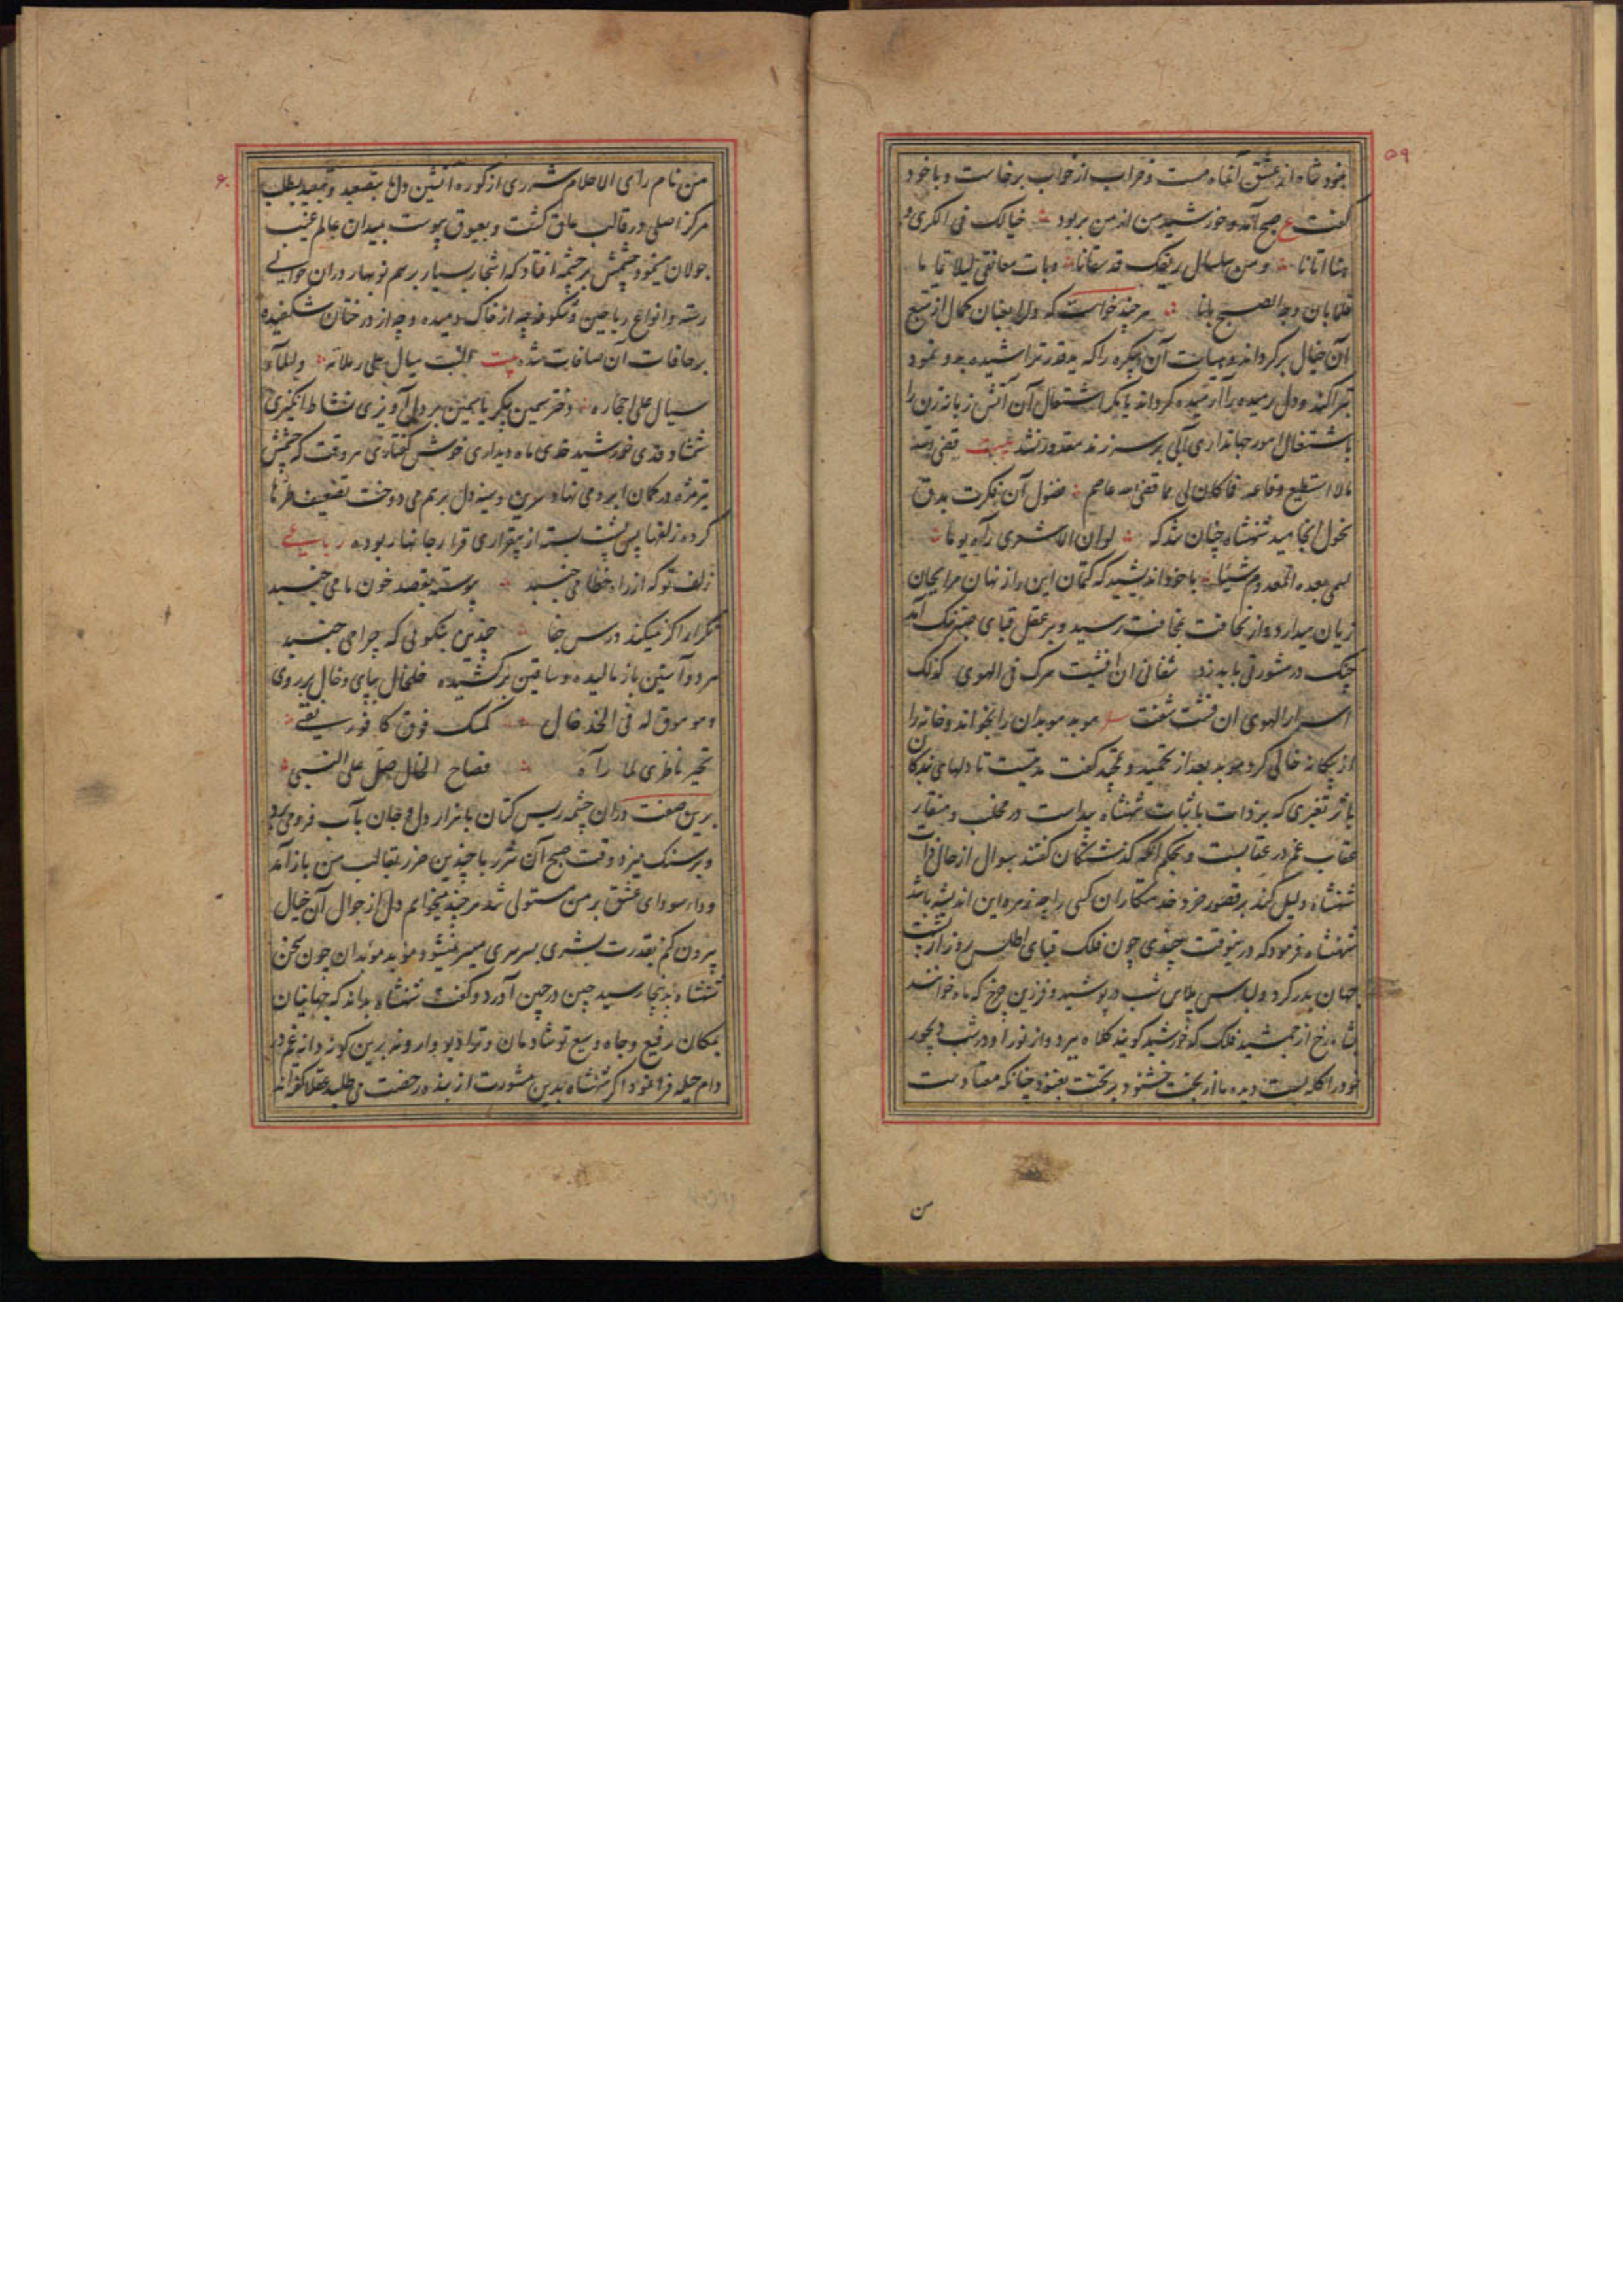 ۵۹
نمود شاه از عشق آن ماه مست و خراب از خواب برخاست و با خود
گفت ع صبح آمد و خورشید من از من بربود خیالک فی الکری و
هنا اتانا و من سلسال ریقک قد سقانا و بات معانقی لیلا
فلما بان وجه الصبح بانا هر چند خواست که دل را بعنان کمال از تتبع
آن خیال برگرداند و هیات آن پیکره را که
تبرا کند و دل رمیده را آرمیده گرداند یا مگر اشتعال آن آتش زبانه زن را
باشتغال امور جهانداری آبی بر سر زند مقدور نشد بیت قضی الله
مالا استطیع دفاعه فما کان لی مما قضی الله عاصم فضول آن فکرت بدق
نحول انجامید شهنشاه چنان شد که لو ان الاشعری رآه یوما
لسمی بعده المعدوم شیئا با خود اندیشید که کتمان این راز نهان مرا بجان
زیان میدارد و از نحافت بمخافت رسید و بر عقل قبای صبر تنک آمد
چنک در مشورتی باید زد شفائی ان افشیت سرک فی الهوی کذلک
اسرار الهوی ان فشت شفت موبد موبدان را بخواند و خانه را
از بیگانه خالی کرد موبد بعد از تحمید و تمجید گفت مدتیست تا دلهای بندگان
باثر تغیری که بر ذات با ثبات شهنشاه پیداست در مخلب و منقار
عقاب غم در عقابست و بحکم آنکه گذشتگان گفتند سوال از حال ذات
شهنشاه دلیل کند بر قصور خرد خدمتکاران کسی را چه زهره این اندیشه باشد
شهنشاه فرمود که درینوقت چندی چون فلک قبای اطلس روز از پشت
جهان بدر کرد و لباس پلاس شب در پوشید و فرزین چرخ که ماه خوانند
شاه رخ از جمشید فلک که خورشید گویند کلاه ببرد و از نور او در شب دیجور
خود را کله بست دیده ما از بخت خشنود بر تخت بغنود چنانکه معتادست
من
۶۰
من نام رای الاحلام شرری از کوره آتشین دل ما بتصعید و تبعید بطلب
مرکز اصلی در قالب عاق گشت و بعیوق پیوست بمیدان عالم غیب
جولان مینمود چشمش بر چشمه افتاد که اشجار بسیار برسم نوبهار در آن حوالی
رسته و انواع ریاحین و شکوفه چه از خاک دمیده و چه از درختان شکفیده
بر حافات آن صافات شده بیت النبت سیال علی رملاته و الماء
سیال علی احجاره دختر سیمین پیکر یاسمین بر دل آویزی نشاط انگیزی
شمشاد قدی خورشید خدی ماه دیداری خوش گفتاری هر وقت که چشمش
تیر مژه در کمان ابرو می نهاد سرین و سینه دل برهم می دوخت تضعیف طره ها
کرده زلفها پس پشت بسته از بیقراری قرار جانها ربوده رباعی
زلف تو که از راه خطا می جنبد پیوسته بقصد خون ما می جنبد
تکرار اگر نمیکند درس جفا چندین بنگوئی که چرا می جنبد
هر دو آستین باز مالیده و ساقین برکشیده خلخال بپای و خال بر روی
و موموق له فی الخد خال کمسک فوق کافور نقی
تحیر ناظری لما رآه فصاح الخال صل علی النبی
برین صفت در آن چشمه ریس کتان با هزار دل و جان بآب فرو می برد
و بر سنک میزد وقت صبح آن شرر با چندین ضرر بقالب من باز آمد
و داء سودای عشق بر من مستولی شد هر چند میخواهم دل از جوال آن خیال
بیرون کنم بقدرت بشری بسرسری میسر نمیشود موبد موبدان چون سخن
شهنشاه بدینجا رسید چین در جبین آورد و گفت شهنشاه بداند که جهانیان
بمکان رفیع و جاه وسیع تو شادمان و تو از دیو وارونه برین گونه دانه غم در
دام حیله فرا نمود اگر شهنشاه بدین مشورت از بنده رخصت می طلبد عقلا گفته اند